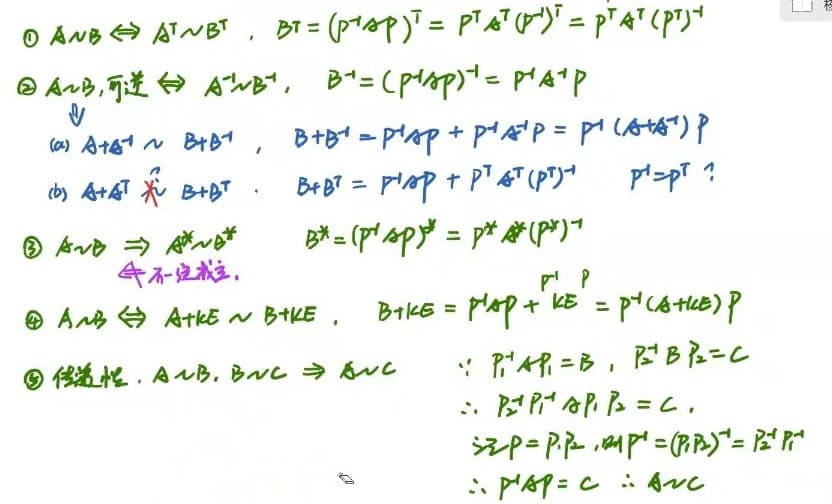 ① A∼B ⇔ Aᵀ∼Bᵀ , Bᵀ = (P⁻¹AP)ᵀ = PᵀAᵀ(P⁻¹)ᵀ = PᵀAᵀ(Pᵀ)⁻¹
② A∼B,可逆 ⇔ A⁻¹∼B⁻¹, B⁻¹ = (P⁻¹AP)⁻¹ = P⁻¹A⁻¹P
⇓
(a) A+A⁻¹ ∼ B+B⁻¹ , B+B⁻¹ = P⁻¹AP + P⁻¹A⁻¹P = P⁻¹(A+A⁻¹)P
(b) A+Aᵀ ≁ B+Bᵀ . B+Bᵀ = P⁻¹AP + PᵀAᵀ(Pᵀ)⁻¹ P⁻¹=Pᵀ ?
③ A∼B ⇒ A*∼B* B* = (P⁻¹AP)* = P*A*(P*)⁻¹
⇐ 不一定成立.
④ A∼B ⇔ A+kE ∼ B+kE , B+kE = P⁻¹AP + P⁻¹kEP = P⁻¹(A+kE)P
⑤ 传递性. A∼B, B∼C ⇒ A∼C ∵ P₁⁻¹AP₁=B , P₂⁻¹BP₂=C
∴ P₂⁻¹P₁⁻¹AP₁P₂ = C .
记P=P₁P₂ ,则P⁻¹=(P₁P₂)⁻¹=P₂⁻¹P₁⁻¹
∴ P⁻¹AP=C ∴ A∼C